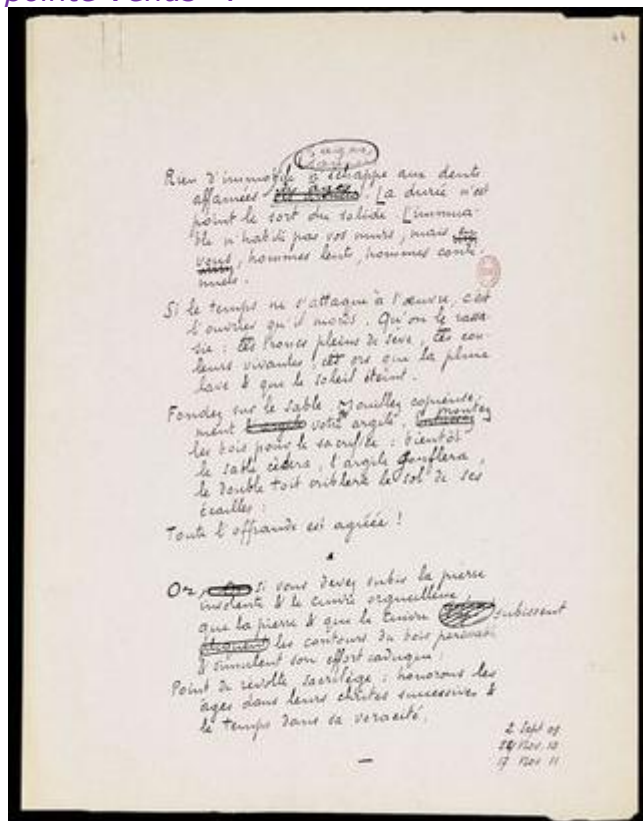 pointe Venus
44
Rien d'immobile n'échappe aux dents
affamées des âges. La durée n'est
point le sort du solide. L'immua-
ble n'habite pas vos murs, mais en
vous, hommes lents, hommes conti-
nuels.
Si le temps ne s'attaque à l'œuvre, c'est
l'ouvrier qu'il mord. Qu'on le rassa-
sie : ces troncs pleins de sève, ces cou-
leurs vivantes, ces ors que la pluie
lave & que le soleil éteint.
Fondez sur le sable. Mouillez copieuse-
ment votre argile. Montez
les bois pour le sacrifice : bientôt
le sable cèdera, l'argile gonflera,
le double toit criblera le sol de ses
écailles :
Toute l'offrande est agréée !
Or, si vous devez subir la pierre
insolente & le cuivre orgueilleux,
que la pierre & que le cuivre subissent
les contours du bois
& simulent son effort caduque :
Point de révolte sacrilège : honorons les
âges dans leurs chutes successives &
le temps dans sa voracité.
2 Sept 09
Nov. 10
17 Nov 11